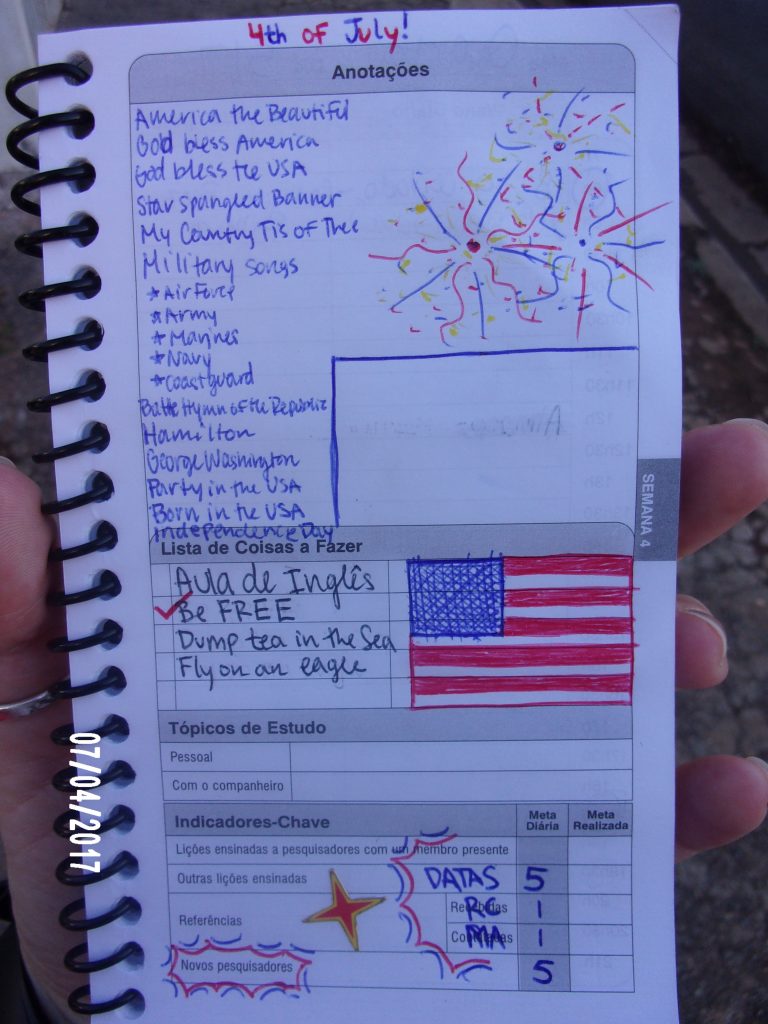 4th of July!
Anotações
America the Beautiful
God bless America
God bless the USA
Star Spangled Banner
My Country Tis of Thee
Military Songs
* Air Force
* Army
* Marines
* Navy
* Coastguard
Battle Hymn of the Republic
Hamilton
George Washington
Party in the USA
Born in the USA
Independence Day
SEMANA 4
Lista de Coisas a Fazer
Aula de Inglês
Be FREE
Dump tea in the Sea
Fly on an eagle
Tópicos de Estudo
Pessoal
Com o companheiro
Indicadores-Chave
Meta Diária
Meta Realizada
Lições ensinadas a pesquisadores com um membro presente
Outras lições ensinadas
DATAS 5
Referências
Recebidas RC 1
MA 1
Novos pesquisadores 5
07/04/2017